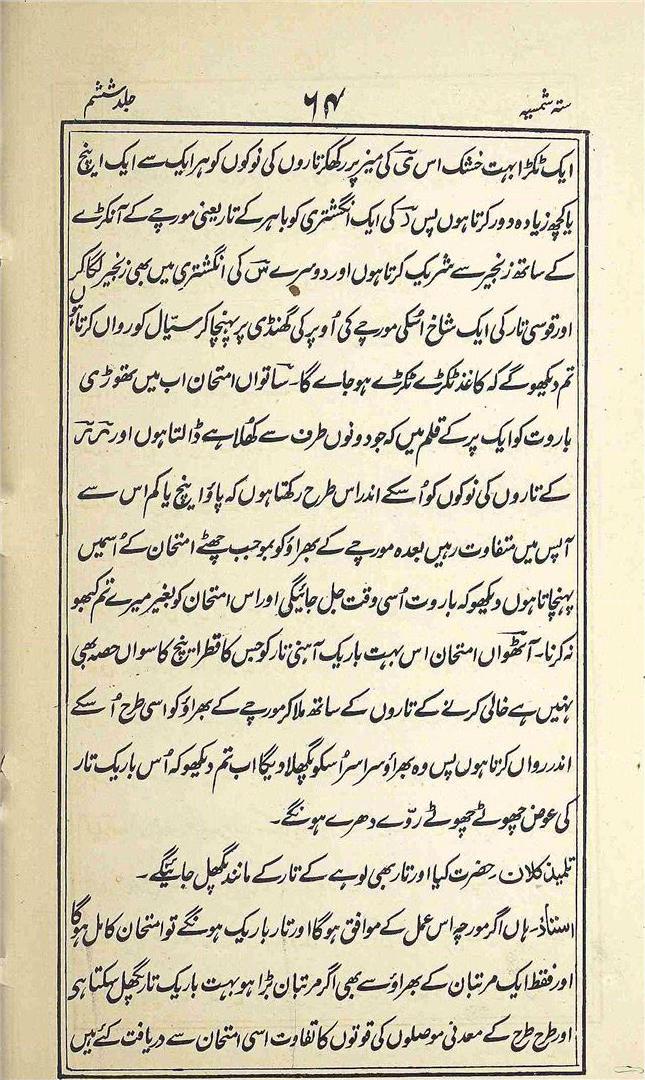 سته شمسیه ۶۷ جلد ششم
ایک ٹکڑا بہت خشک اس یٓ کی میز پر رکھکر تاروں کی نوکوں کو ہر ایک سے ایک اینچ
یا کچھ زیادہ دور کرتا ہوں پس دٓ کی ایک انگشتری کو باہر کے تار یعنی مورچے کے آنکڑے
کے ساتھ زنجیر سے شریک کرتا ہوں اور دوسرے سٓ کی انگشتری میں بھی زنجیر لگا کر
اور قوسی تار کی ایک شاخ اُسکی مورچے کی اُوپر کی گھنڈی پر پہنچا کر سیّال کو رواں کرتا ہوں
تم دیکھو گے کہ کاغذ ٹکڑے ٹکڑے ہو جاے گا۔ ساتواں امتحان اب میں تھوڑی
باروت کو ایک پر کے قلم میں کہ جو دونوں طرف سے کھُلا ہے ڈالتا ہوں اور
کے تاروں کی نوکوں کو اُسکے اندر اس طرح رکھتا ہوں کہ پاؤ اینچ یا کم اس سے
آپس میں متفاوت رہیں بعدہ مورچے کے بھراؤ کو بموجب چھٹے امتحان کے اُسمیں
پہنچاتا ہوں دیکھو کہ باروت اُسی وقت جل جائیگی اور اس امتحان کو بغیر میرے تم کبھو
نہ کرنا۔ آٹھواں امتحان اس بہت باریک آہنی تار کو جس کا قطر اینچ کا سواں حصہ بھی
نہیں ہے خالی کرنے کے تاروں کے ساتھ ملا کر مورچے کے بھراؤ کو اسی طرح اُسکے
اندر رواں کرتا ہوں پس وہ بھراؤ سراسر اُسکو پگھلا ویگا اب تم دیکھو کہ اُس باریک تار
کی عوض چھوٹے چھوٹے روّے دھرے ہونگے۔
تلمیذ کلان۔ حضرت کیا اور تار بھی لوہے کے تار کے مانند پگھل جائینگے۔
استاذ۔ ہاں اگر مورچہ اس عمل کے موافق ہوگا اور تار باریک ہونگے تو امتحان کامل ہوگا
اور فقط ایک مرتبان کے بھراؤ سے بھی اگر مرتبان بڑا ہو بہت باریک تار پگھل سکتا ہی
اور طرح طرح کے معدنی موصلوں کی قوتوں کا تفاوت اسی امتحان سے دریافت کئے ہیں